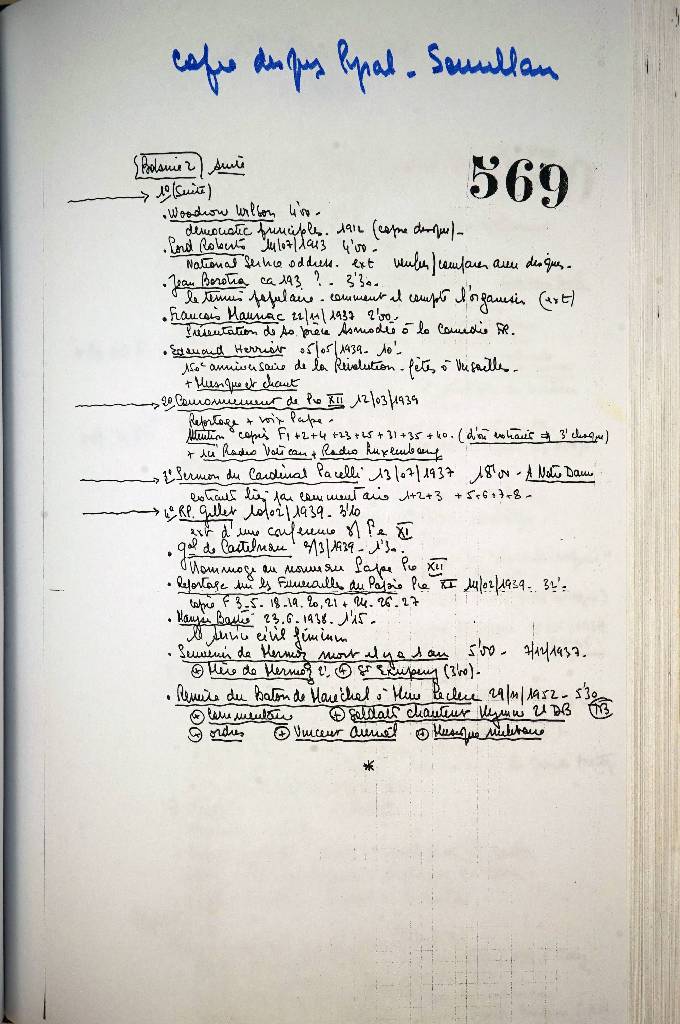 copie disques Pyral - Soumillan
569
Bobine 2 suite
1º (Suite)
. Woodrow Wilson 4'00 -
democratic principles. 1912 (copie disque) -
. Lord Roberts 14/07/1913 4'00 -
National Service address. ext
. Jean Borotra ca 193 ? - 3'30 -
le tennis populaire - comment il compte l'organiser (ext)
. François Mauriac 22/11/1937 2'00 -
Présentation de sa pièce Asmodée à la Comédie FR.
. Edouard Herriot 05/05/1939 - 10' -
150e anniversaire de la Révolution - fêtes à Versailles -
+ Musique et chant
2º Couronnement de Pie XII 12/03/1939
Reportage + voix Pape -
Attention copie F1+2+4+23+25+31+35+40 - (d'où extraits → 3' chaque)
+ Radio Vatican + Radio Luxembourg
3º Sermon du Cardinal Pacelli 13/07/1937 18'00 - A Notre Dame
extraits liés par commentaire 1+2+3 +5+6+7+8 -
4º RP. Gillet 10/02/1939 - 3'10
ext d'une conférence s/ Pie XI
. Gal de Castelnau 2/3/1939 - 1'30 -
Hommage au nouveau Pape Pie XII
. Reportage sur les Funérailles du Pape Pie XI 14/02/1939 - 32' -
copie F 3-5-18-19-20,21+24-26-27
. 23.6.1938 - 1'15 -
le service civil féminin
. Souvenir de Mermoz mort il y a 1 an 5'00 - 7/12/1937 -
+ Mère de Mermoz 2' + St Exupery (3'00) -
. Remise du Baton de Maréchal à Mme Leclerc 29/11/1952 - 5'30 TB
+ Commentaire + Soldats chantent Hymne 2e DB
+ ordres + Vincent Auriol + Musique militaire
*